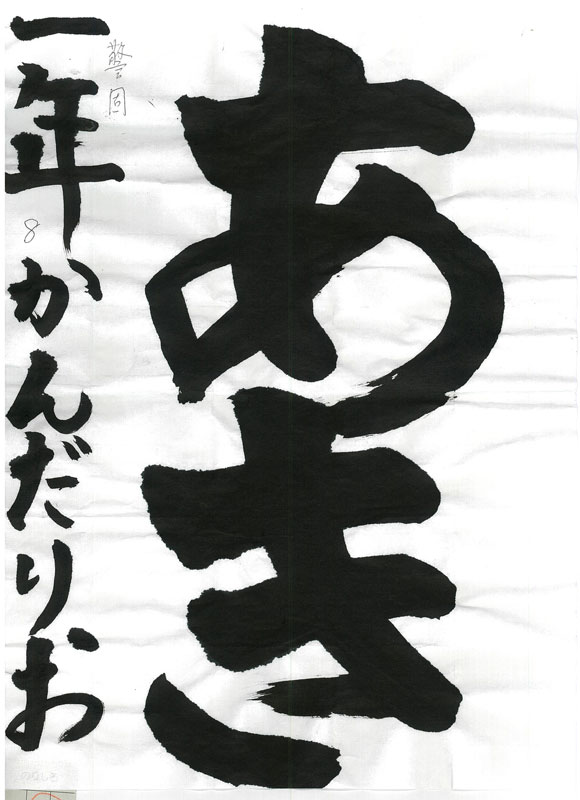 あき
警固
一年かんだりお
8